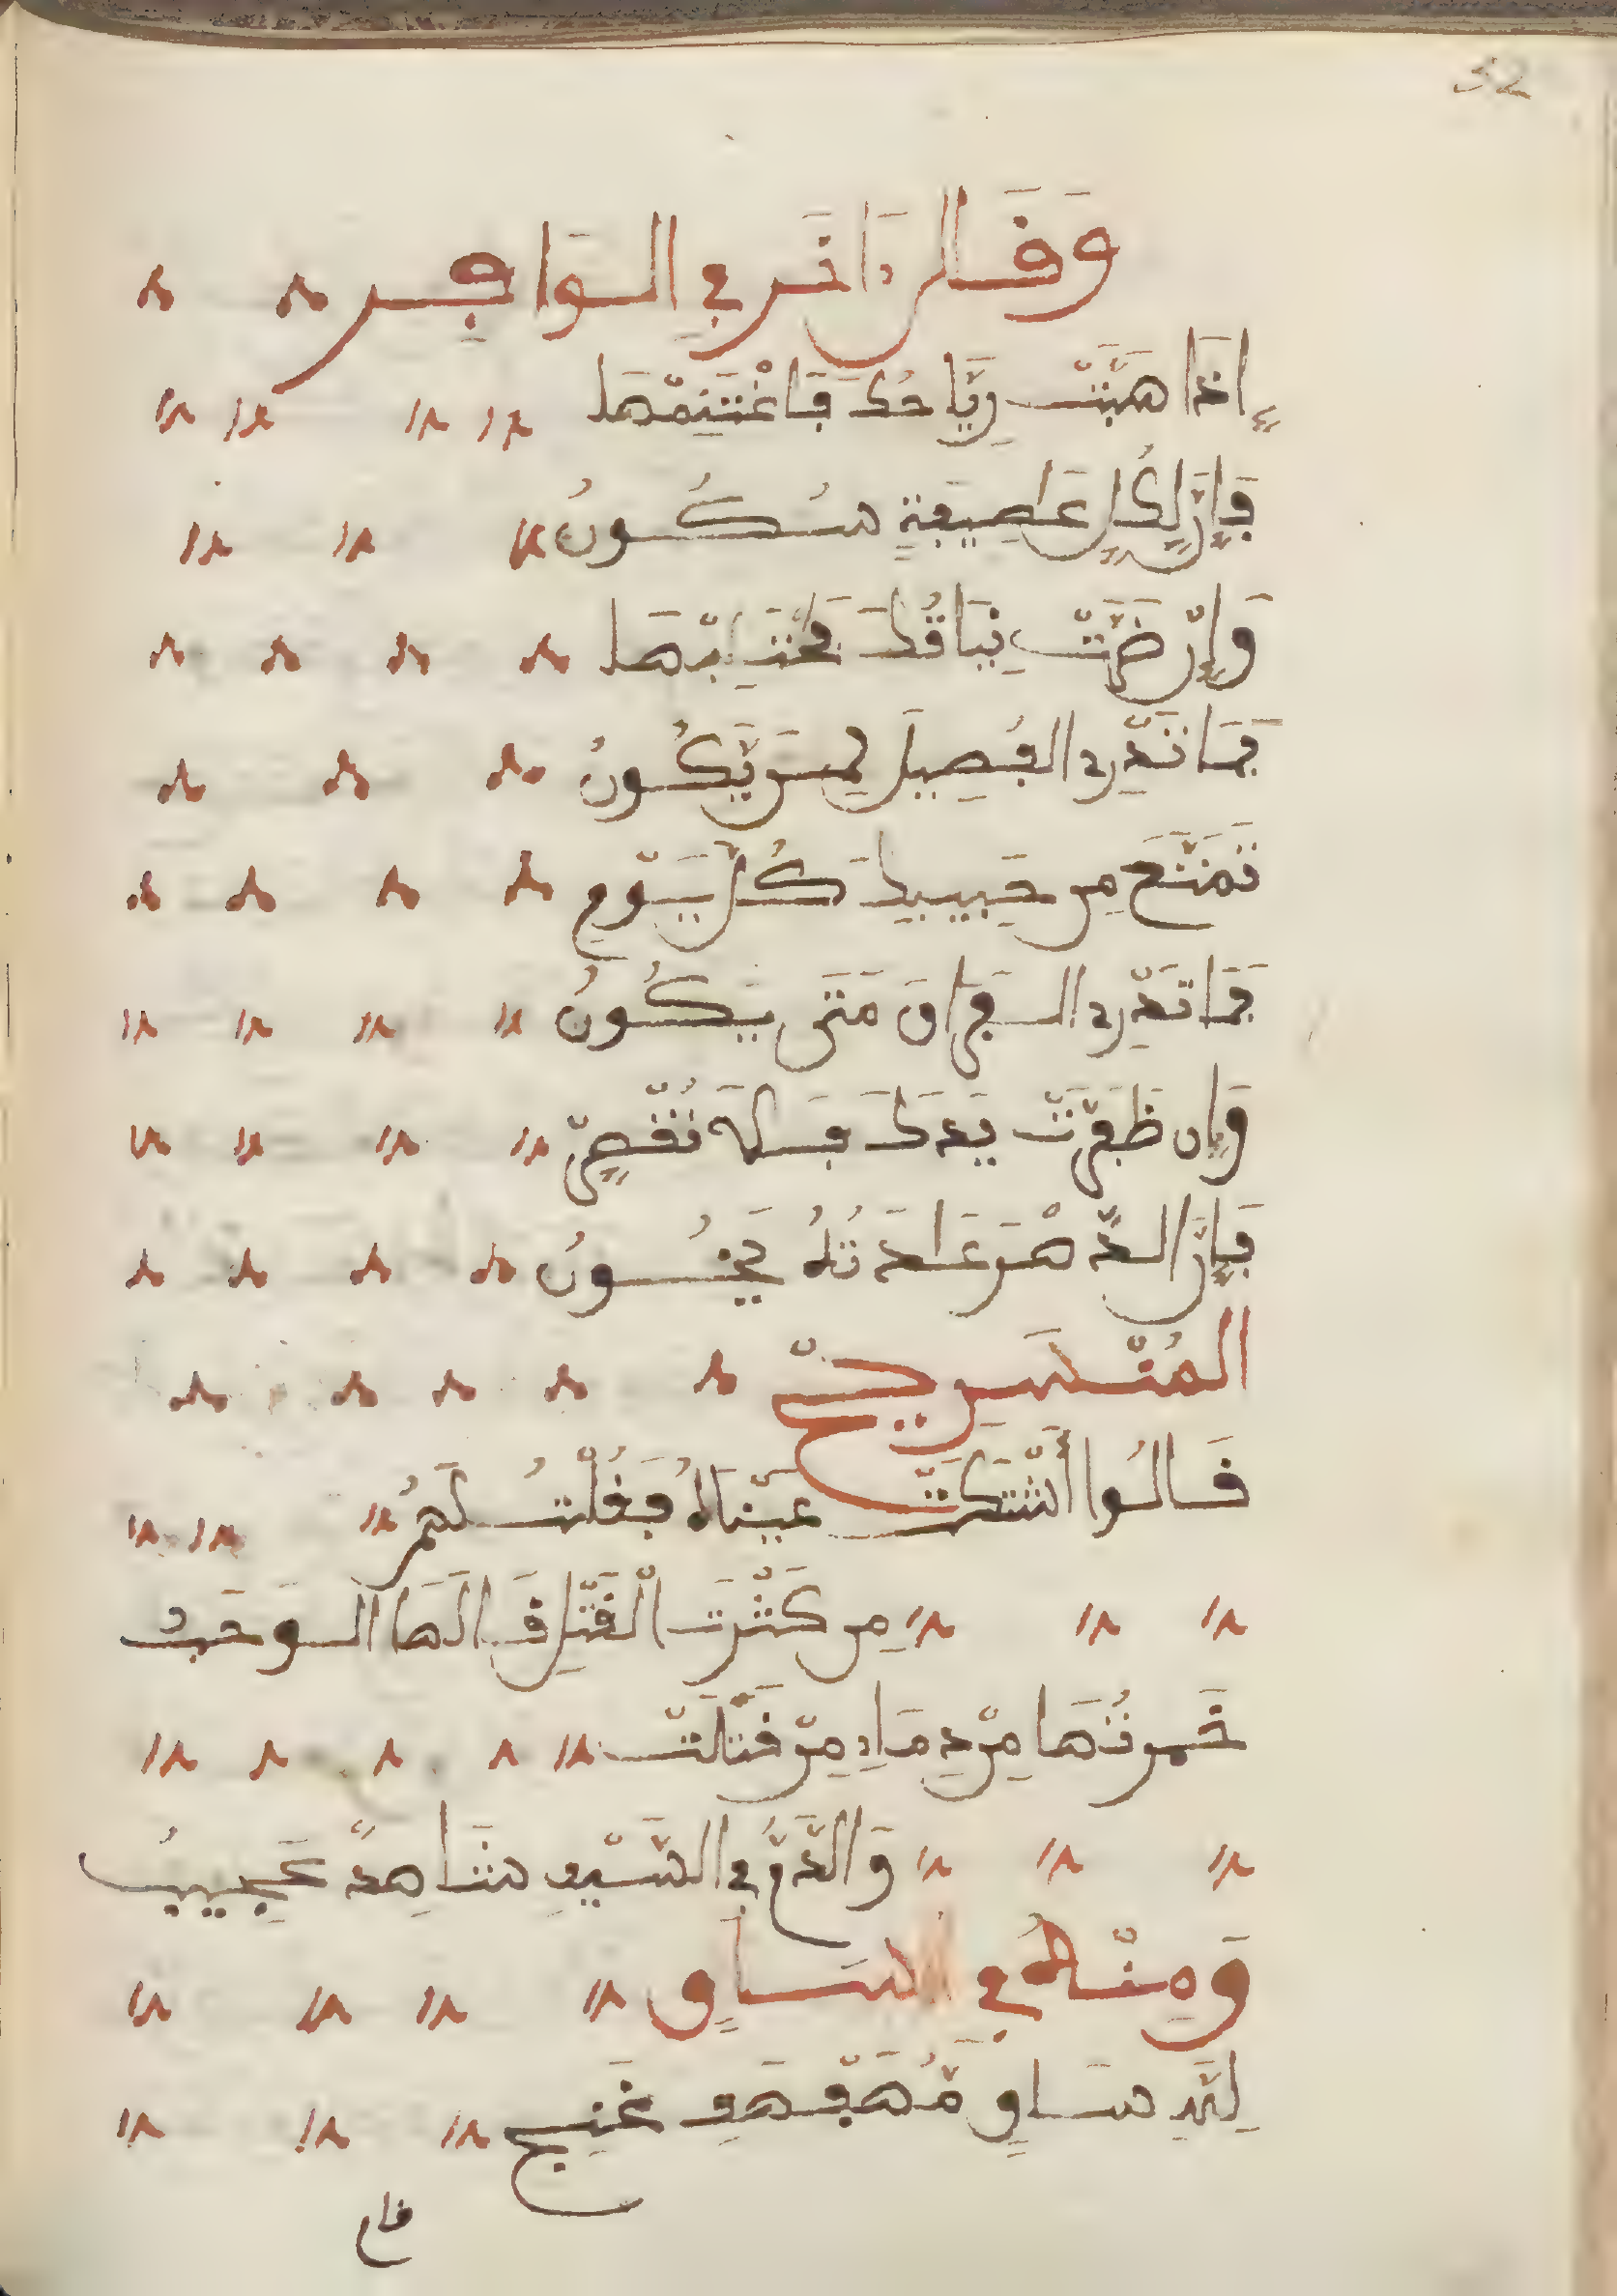 32
وَقَالَ ءَاخَر فِي الـوَافِـر
إِذَا هَبَّتْ رِيَّاحُكَ فَاغْتَنِمْهَا
فَإِنَّ لِكُلِ عَاصِيفَةٍ سُكُونُ
وَإِنْ ضَرَّتْ نِيَاقُكَ فَحْتَلِبْهَا
فَمَا تَدْرِي الفُصِيلَ لِمَنْ يَّكُونُ
تَمَتَّعْ مِن حَبِيبِيكَ كُلّ يَوْمٍ
فَمَا تَدْرِي الـفِرَاقَ مَتَى يَكُونُ
وَإِن ظَفَرَتْ يَدَكَ فَلَا تُقْصِرْ
فَإِنَّ الدَّهْرَ عَادَتُهُ يَخُونُ
المُنْسَرِيحْ
قَالُوا أَشْتَكَتْ عَيْنَاهُ فَقُلْتُ لَهُمُ
مِن كَثْرَتِ الْقَتْلِ نَـالَهَا الـوَصَبُ
حَمرتُهَا مِنْ دِمَاءِ مِنْ قَتَلَتْ
وَالدَّمُ فِي السَّيْفِ شَاهِدً عَجِيبُ
وَمِنْهُ فِي سَاقٍ
لِلَّهِ سَاقٍ مُّهَفْهَفِ غَنِجٍ
قام